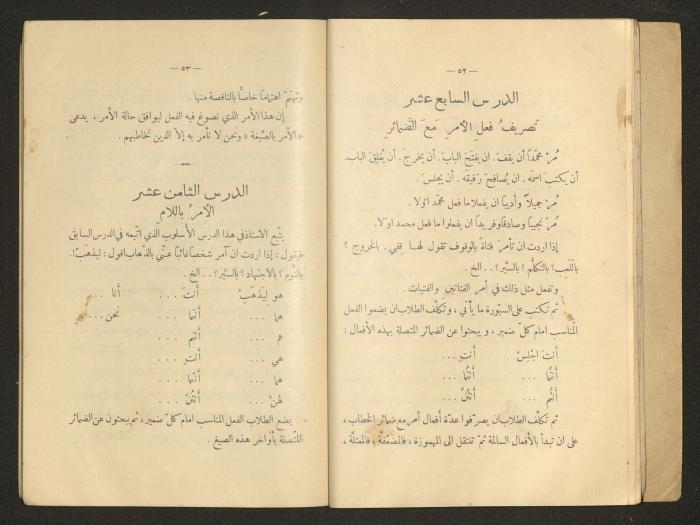 — ٥٢ —
الدرس السابع عشر
تصريفُ فعلِ الأمرِ مَعَ الضّمائرِ
مُرْ محمّدًا أن يقفَ. ان يفتحَ البابَ. أن يخرجَ. أن يُغلِقَ البابَ.
أن يكتبَ اسمَه. ان يُصافِحَ رَفيقَه. أن يجلسَ.
مُرْ جميلاً وأديبًا ان يفعلا ما فعل محمّد اوّلا.
مُرْ نجيبًا وصادقًا وفريدًا ان يفعلوا ما فعل محمد اوّلا.
إذا اردت ان تأمرَ فتاةً بالوقوف تقول لها قِفي. بالخروج ؟
باللّعَبِ؟ بالتكلّم؟ بالسّير؟ . . الخ.
وتفعل مثل ذلك في أمر الفتاتين والفتيات.
ثم تكتب على السبّورة ما يأتي ، وتكلّف الطلاب ان يضموا الفعل
المناسب امام كلّ ضمير ، و يبحثوا عن الضمائر المتصلة بهذه الأفعال :
أنتَ اجْلِسْ أنتِ ...
أنْتُما ... أنْتُما ...
أنْتُم ... أنتُنَّ ...
ثم تكلّف الطلاب ان يصرّفوا عدّة أفعال أمر مع ضمائر الخطاب ،
على ان تبدأ بالأفعال السالمة ثمّ تنتقل الى المهموزة ، فالمضعّفة ، فالمعتلّة ،
— ٥٣ —
وتهتمّ اهتمامًا خاصًّا بالناقصة منها .
إن هذا الأمر الذي نصوغ فيه الفعل ليوافق حالة الأمر ، يدعى
« الأمر بالصّيغة » ونحن لا نأمر به إلاّ الذين نخاطبهم .
الدرس الثامن عشر
الأمرُ باللامِ
يتّبع الاستاذ في هذا الدرس الأسلوب الذي اتّبعه في الدرس السابق
فيقول : إذا اردت ان آمر شخصًا غائبًا عنّي بالذّهاب اقول : ليذهبْ!.
بالنَّوم ؟ بالاجتهاد ؟ بالسّير ؟ . . الخ .
هو لِيَذهَبْ أنتَ ... أنا ...
هما ... أنتما ... نحن ...
هم ... أنتُم ...
هي ... أنتِ ...
هما ... أنتما ...
هُنّ ... أنتُنَّ ...
يضع الطلاب الفعل المناسب امام كلّ ضمير، ثم يبحثون عن الضمائر
المتّصلة بأواخر هذه الصيغ .